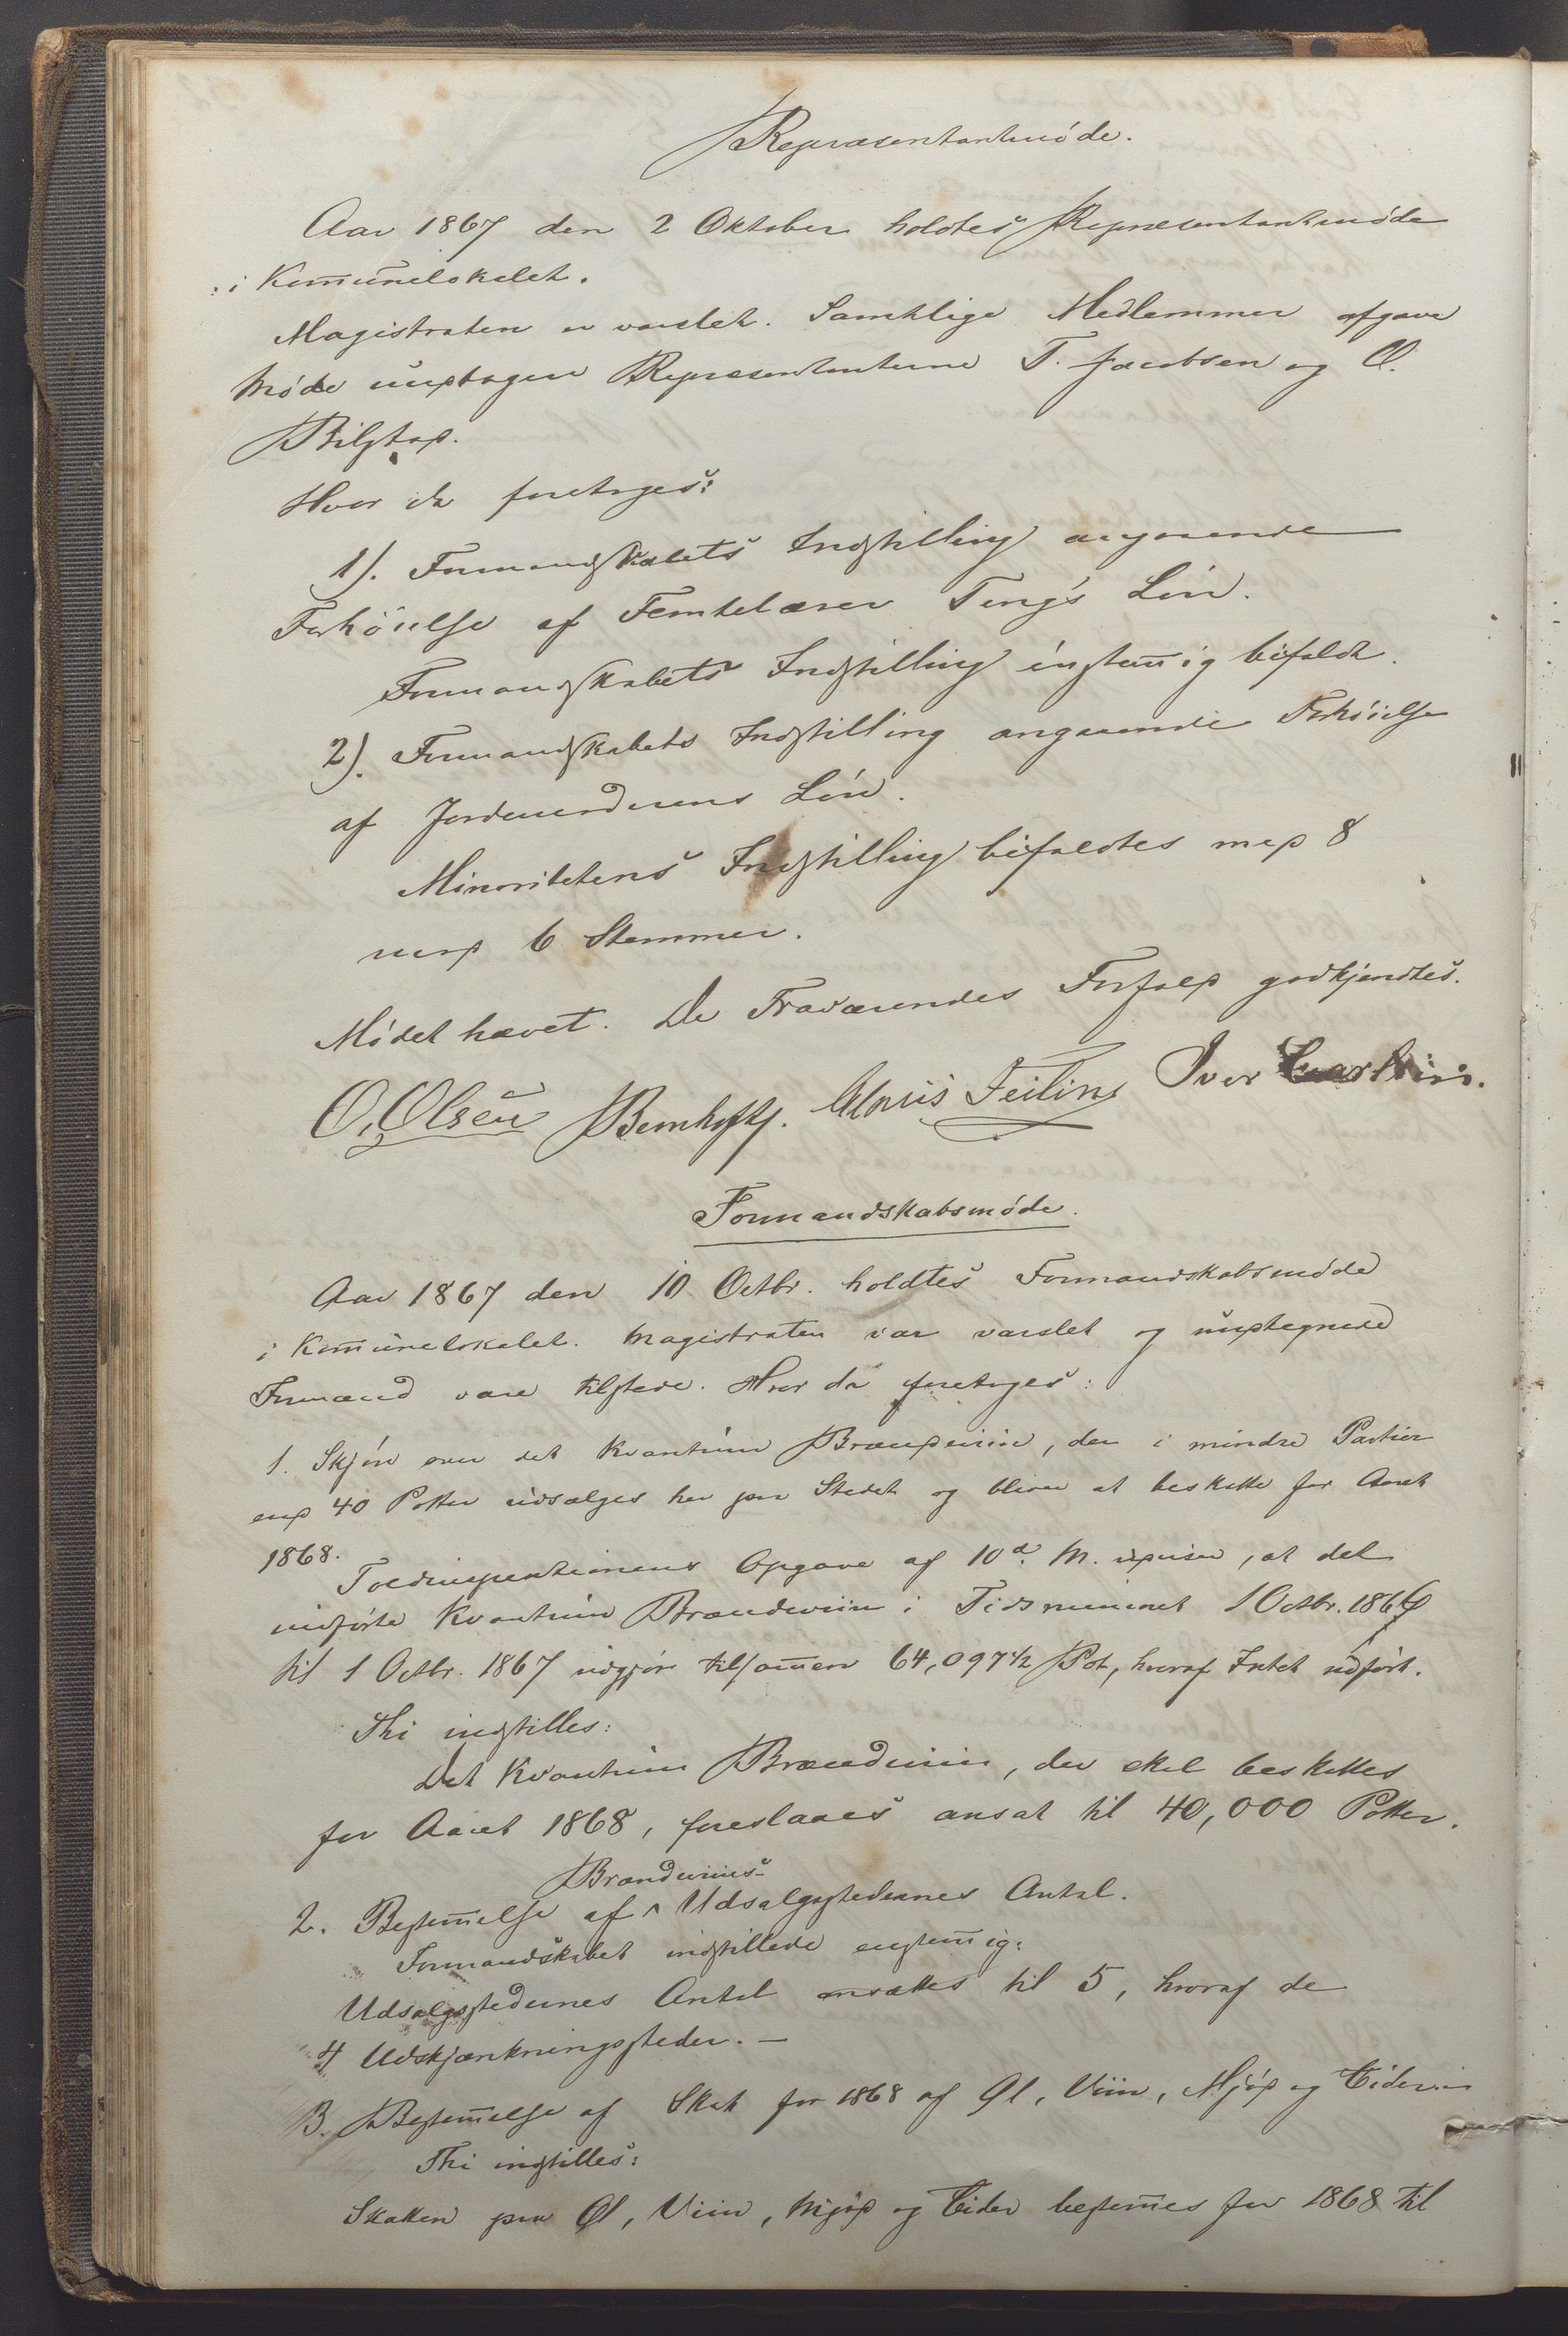 Repræsentantmøde.
Aar 1867 den 2 Oktober holdtes Repræsentantmøde
i Kom̅unelokalet.
Magistraten er varslet. Samtlige Medlemmer afgave
Møde undtagen Repræsentanterne T. Jacobsen og O.
Bilstad.
Hvor da foretoges:
1). Formandskabets Indstilling angaaende
Forhöielse af Femtelærer Tengs Løn.
Formandskabets Indstilling enstem̅ig bifaldt.
2). Formandskabets Indstilling angaaende Forhöielse
af Jordemodrens Løn.
Minoritetens Indstilling bifaldtes med 8
mod 6 Stemmer.
Mødet hævet. De Fraværendes Forfald godkjendtes.
O. Olsen Bernhoft. Feiling Iver
Formandskabsmøde.
Aar 1867 den 10 Octbr. holdtes Formandskabsmøde
i Kom̅unelokalet. Magistraten var varslet og undtegnede
Formænd vare tilstede. Hvor da foretoges:
1. Skjøn over det Kvantum Brændeviin, der i mindre Partier
end 40 Potter udsælges her paa Stedet og bliver at beskatte for Aaret
1868.
Toldinspektionens Opgave af 10 d. M. udviser, at det
indførte Kvantum Brændeviin i Tidsrummet 1 Octbr. 1866
til 1 Octbr. 1867 udgjør tilsam̅en 64,097½ Pot, hvoraf Intet udført.
Thi indstilles:
Det Kvantum Brændeviin, der skal beskattes
for Aaret 1868, foreslaaes ansat til 40,000 Potter.
Brændeviins-
2. Bestem̅else af ^ Udsalgsstedernes Antal.
Formandskabet indstillede enstem̅ig:
Udsalgsstedernes Antal ansættes til 5, hvoraf de
4 Udskjænkningssteder. —
3. Bestem̅else af Skat for 1868 af Øl, Viin, Mjød og Cider.
Thi indstilles:
Skatten paa Øl, Viin, Mjød og Cider bestem̅es for 1868 til